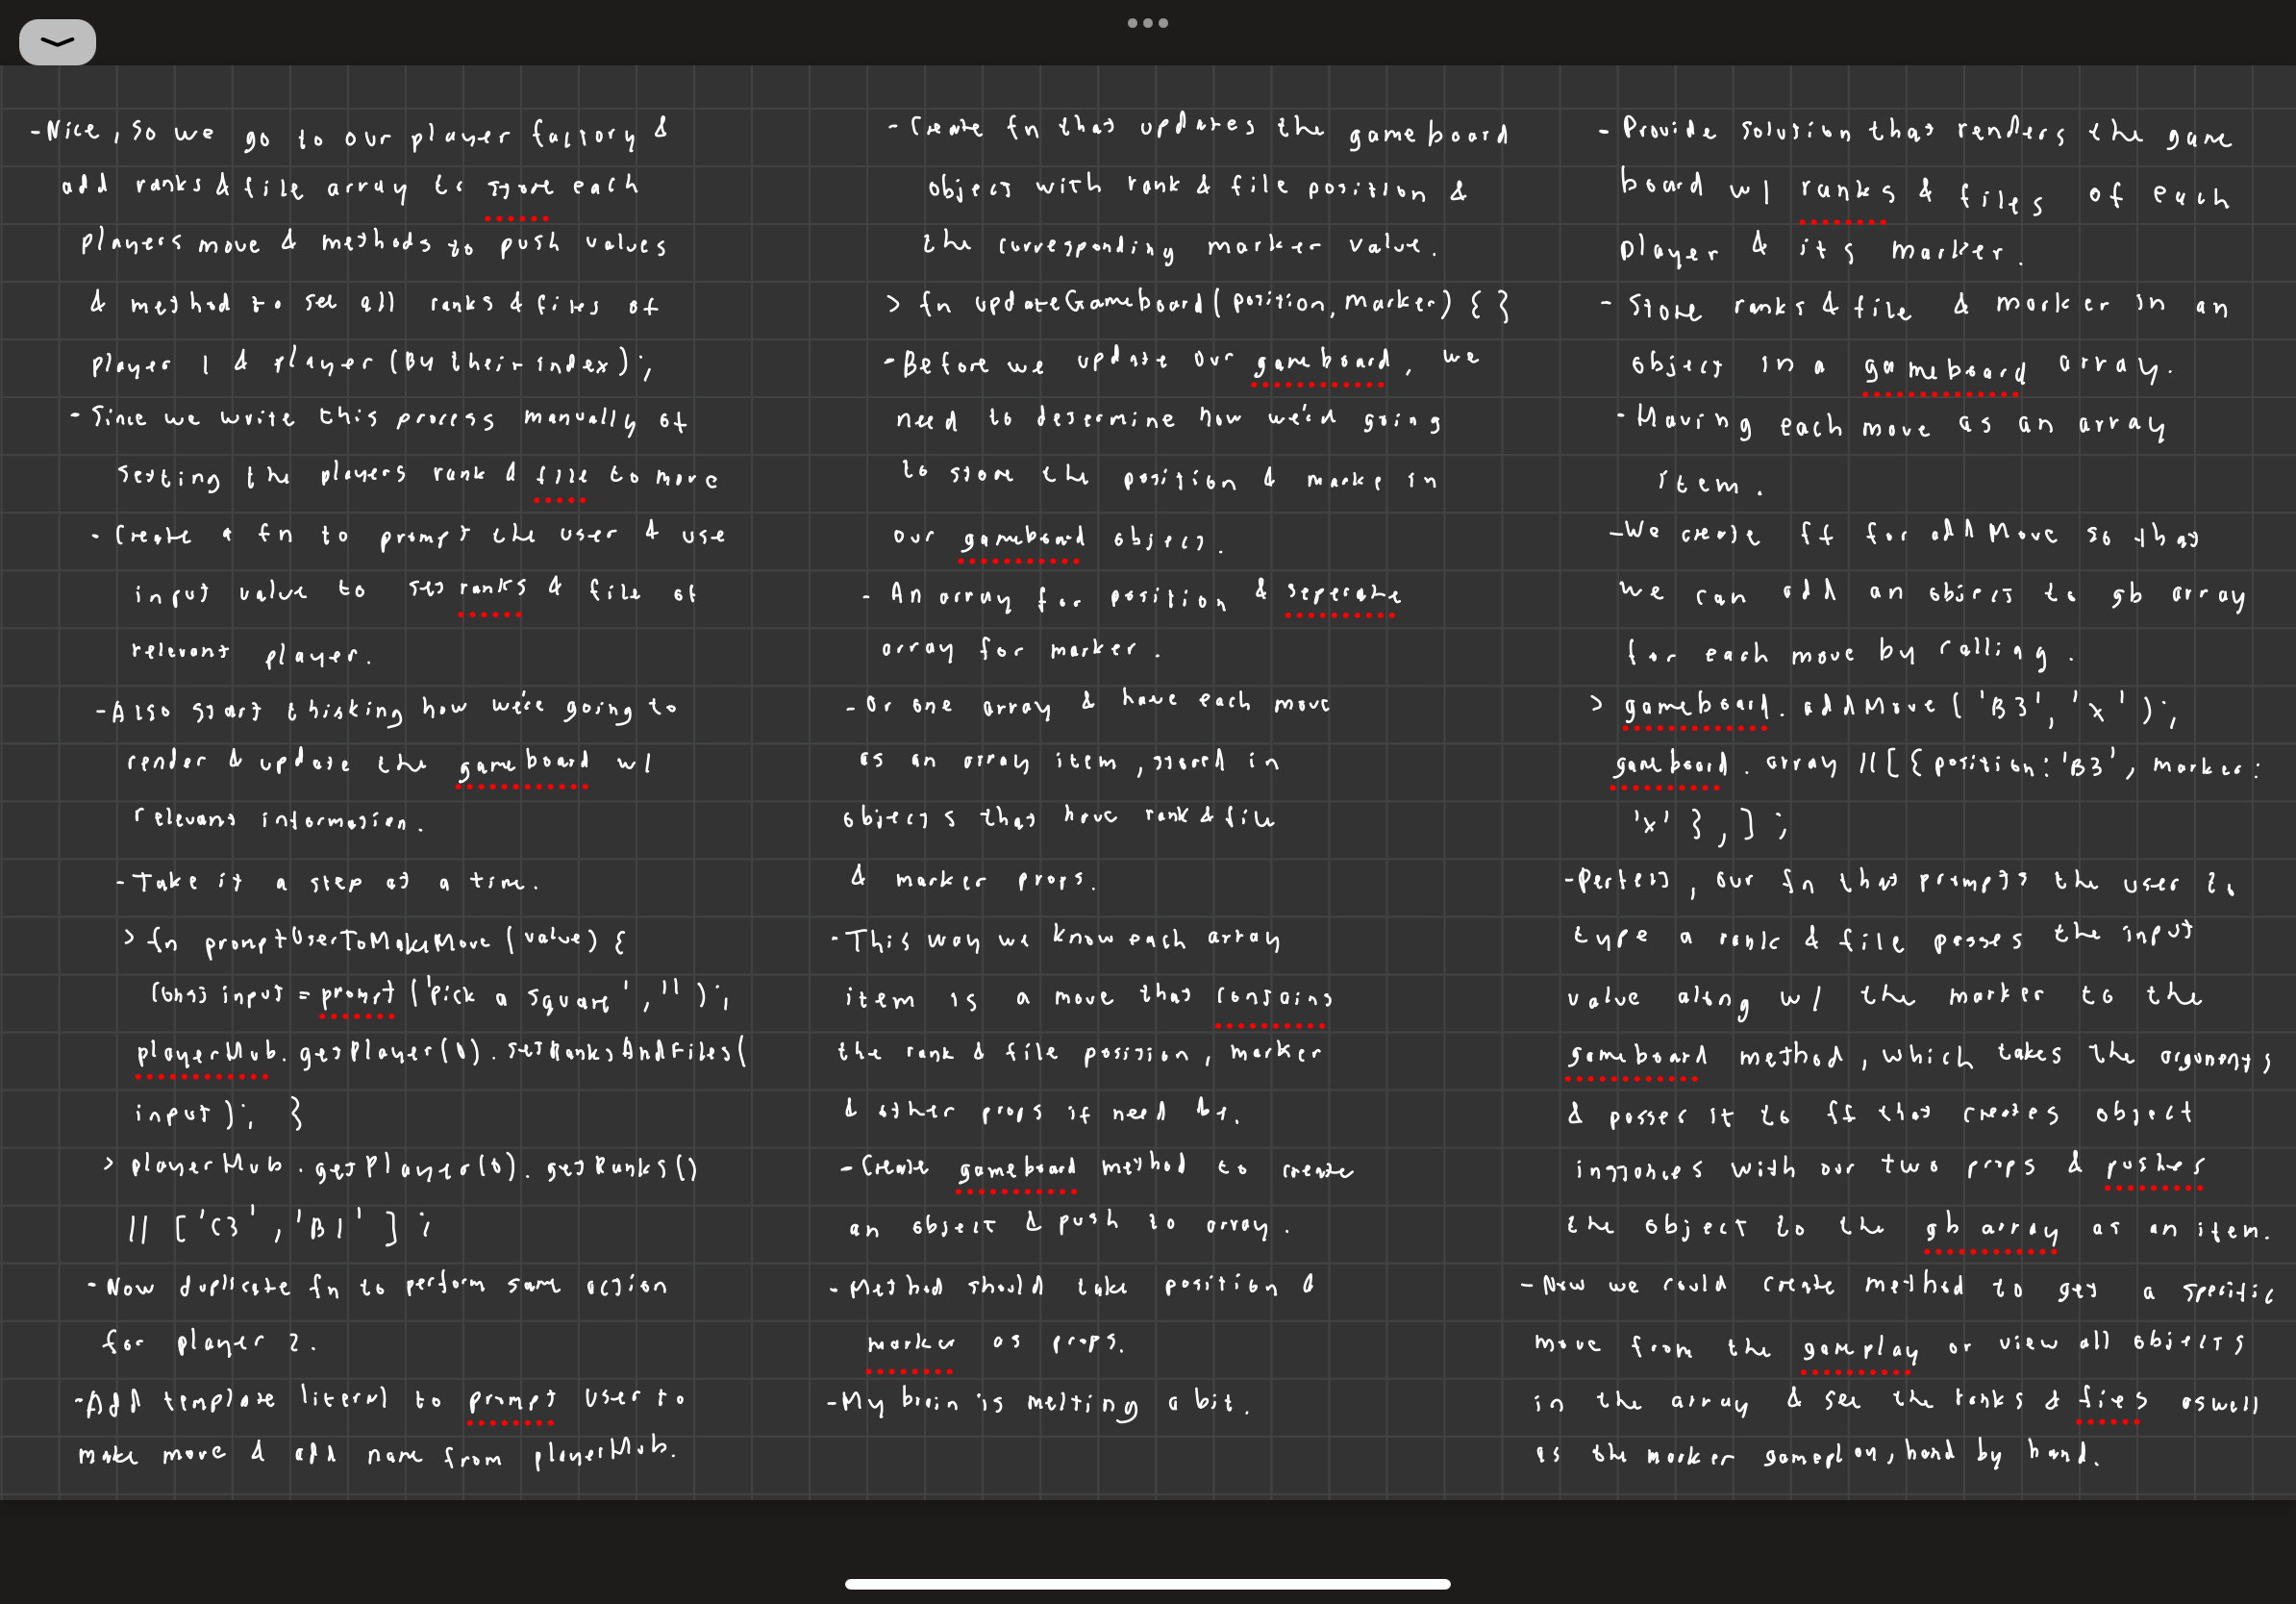 -Nice, so we go to our player factory &
add ranks & file array to store each
players move & methods to push values
& method to see all ranks & files of
player 1 & player (By their index);
-Since we write this process manually of
setting the players rank & file to move
-Create a fn to prompt the user & use
input value to set ranks & file of
relevant player.
-Also start thisking how we're going to
render & update the gameboard w/
relevant information.
-Take it a step at a time.
> fn promptUserToMakeMove (value) {
const input = prompt ('Pick a square', '');
playerHub.getPlayer(0).setRanksAndFiles(
input); }
> playerHub.getPlayer(0).getRanks()
// ['C3', 'B1'];
-Now duplicate fn to perform same action
for player 2.
-Add template literal to prompt user to
make move & add name from playerHub.
-Create fn that updates the gameboard
object with rank & file position &
the corresponding marker value.
> fn updateGameboard(position, marker) { }
-Before we update our gameboard, we
need to determine how we'd going
to store the position & marke in
our gameboard object.
- An array for position & seperate
array for marker.
-Or one array & have each move
as an array item, stored in
objects that have rank & file
& marker props.
-This way we know each array
item is a move that contains
the rank & file position, marker
& other props if need be.
-Create gameboard method to create
an object & push to array.
-Method should take position &
marker as props.
-My brain is melting a bit.
-Provide solution that renders the game
board w/ ranks & files of each
player & its marker.
-Store ranks & file & marker in an
object in a gameboard array.
-Having each move as an array
item.
-We create ff for addMove so that
we can add an object to gb array
for each move by calling.
> gameboard.addMove('B3', 'x');
gameboard.array //[{position:'B3', marker:
'x' },];
-Perfect, our fn that prompts the user to
type a rank & file passes the input
value along w/ the marker to the
gameboard method, which takes the arguments
& passes it to ff that creates object
instances with our two props & pushes
the object to the gb array as an item.
-Now we could create method to get a specific
move from the gameplay or view all objects
in the array & see the ranks & fies aswell
as the marker gameplay, hand by hand.